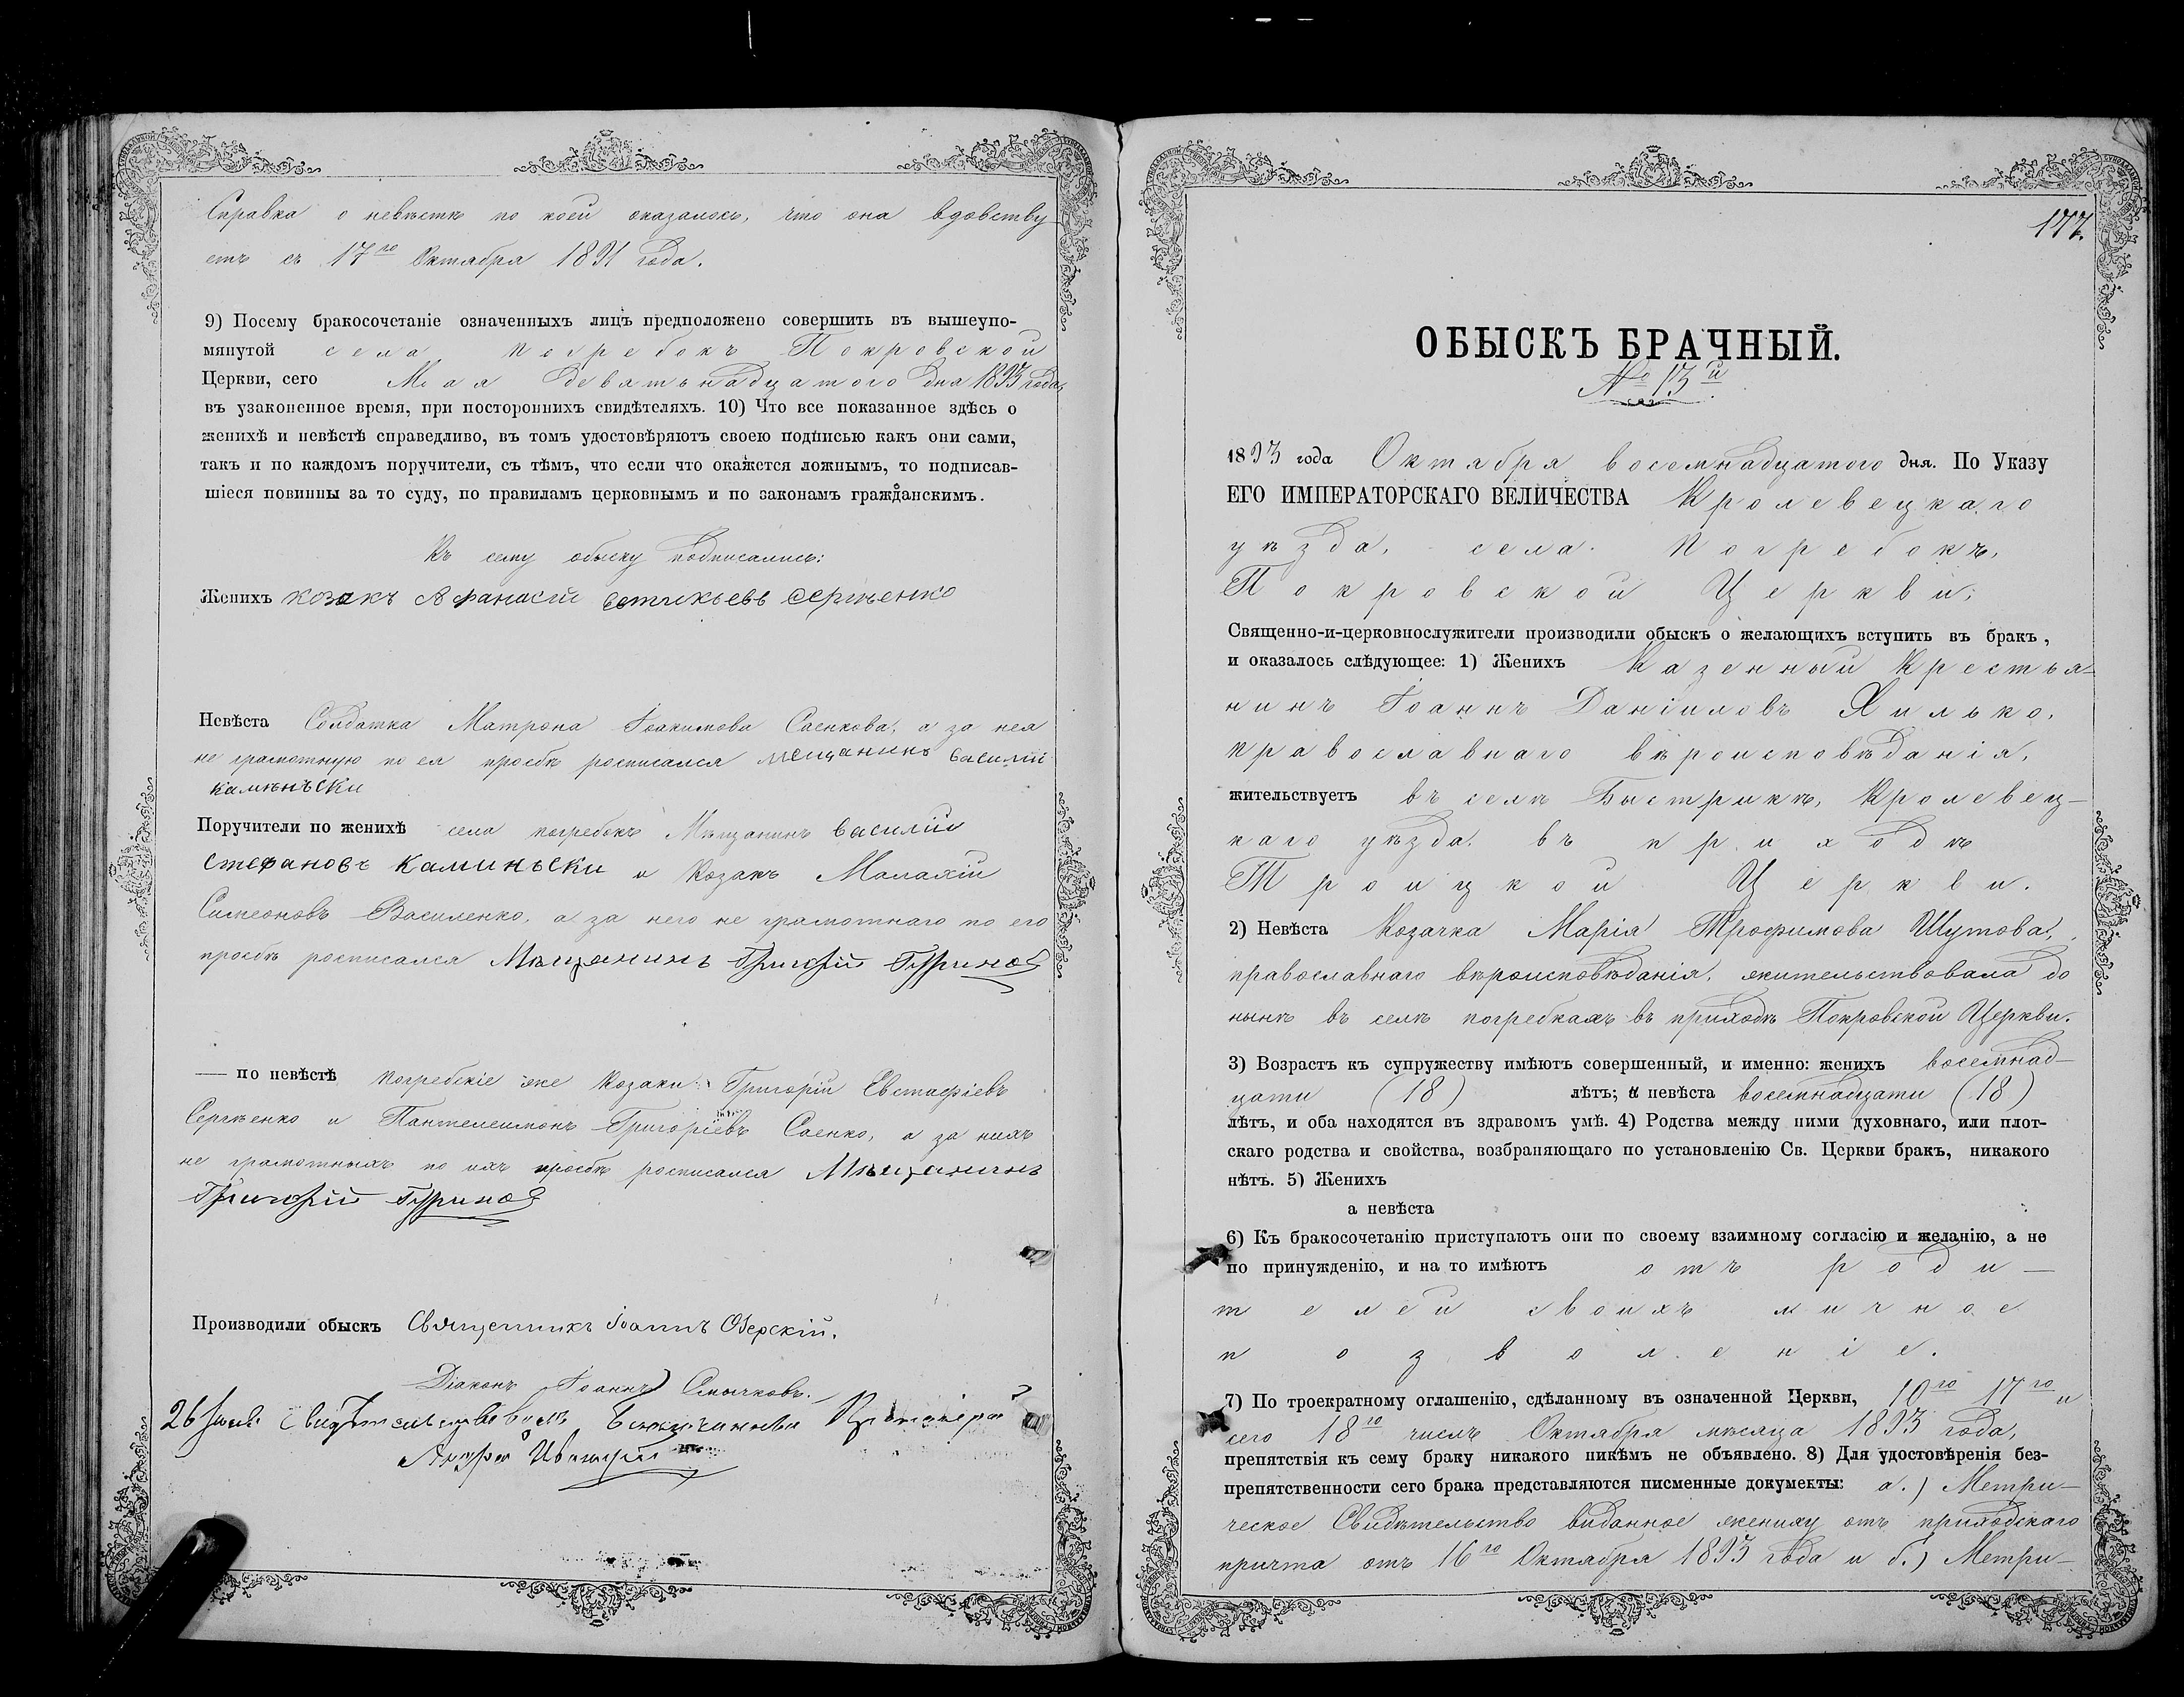 Справка о невѣстѣ по коей оказалось, что она вдовству
етъ съ 17го Октября 1891 года.
9) Посему бракосочетаніе означенныхъ лицъ предположено совершить въ вышеупо-
мянутой села Погребокъ Покровской
Церкви, сего Мая девятьнадцатого дня 1893 года,
въ узаконенное время, при постороннихъ свидѣтеляхъ. 10) Что все показанное здѣсь о
женихѣ и невѣстѣ справедливо, въ томъ удостовѣряютъ своею подписью какъ они сами,
такъ и по каждомъ поручители, съ тѣмъ, что если что окажется ложнымъ, то подписав-
шіеся повинны за то суду, по правиламъ церковнымъ и по законамъ гражданскимъ.
Къ сему обыску подписались:
Женихъ козакъ Афанасій Сергѣенко
Невѣста Солдатка Матрона Іоакимова Саенкова, а за нея
не грамотную по ея просьбѣ росписался мещанинъ Василій
каменъски
Поручители по женихѣ села погребокъ Мѣщанинъ василій
стефановъ каминьски и Козакъ Малахій
Симеоновъ Василенко, а за него не грамотнаго по его
просьбѣ росписался Мѣщанинъ Григорій Гуринов
— по невѣстѣ Погребскіе же Козаки: Григорій Евстафіевъ
Сергѣенко и Пантелеимонъ Григоріевъ Саенко, а за нихъ
не грамотныхъ по ихъ просьбѣ росписался Мѣщанинъ
Григорій Гуринов
Производили обыскъ Священникъ Іоаннъ Озерскій.
Діаконъ Іоаннъ Смычковъ.
26
177.
ОБЫСКЪ БРАЧНЫЙ.
№ 13й
1893 года Октября восемнадцатого дня. По Указу
ЕГО ИМПЕРАТОРСКАГО ВЕЛИЧЕСТВА Кролевецкаго
уѣзда, села Погребокъ,
Покровской Церкви,
Священно-и-церковнослужители производили обыскъ о желающихъ вступить въ бракъ,
и оказалось слѣдующее: 1) Женихъ Казенный Крестья-
нинъ Іоаннъ Даніиловъ Хилько,
православнаго вѣроисповѣданія,
жительствуетъ въ селѣ Быстрикѣ, Кролевец-
каго уѣзда въ приходѣ
Троицкой Церкви.
2) Невѣста Козачка Марія Трофимова Шутова,
православнаго вѣроисповѣданія, жительствовала до
нынѣ въ селѣ погребкахъ въ приходѣ Покровской Церкви.
3) Возрастъ къ супружеству имѣютъ совершенный, и именно: женихъ восемнад-
цати (18) лѣтъ; а невѣста восемнадцати (18)
лѣтъ, и оба находятся въ здравомъ умѣ. 4) Родства между ними духовнаго, или плот-
скаго родства и свойства, возбраняющаго по установленію Св. Церкви бракъ, никакого
нѣтъ. 5) Женихъ
а невѣста
6) Къ бракосочетанію приступаютъ они по своему взаимному согласію и желанію, а не
по принужденію, и на то имѣютъ отъ роди-
телей своихъ личное
позволеніе.
7) По троекратному оглашенію, сдѣланному въ означенной Церкви, 10го 17го и
сего 18го числъ Октября мѣсяца 1893 года,
препятствія къ сему браку никакого никѣмъ не объявлено. 8) Для удостовѣренія без-
препятственности сего брака представляются писменные документы: а.) Метри-
ческое Свидѣтельство виданное жениху отъ приходскаго
причта отъ 16го Октября 1893 года и б.) Метри-